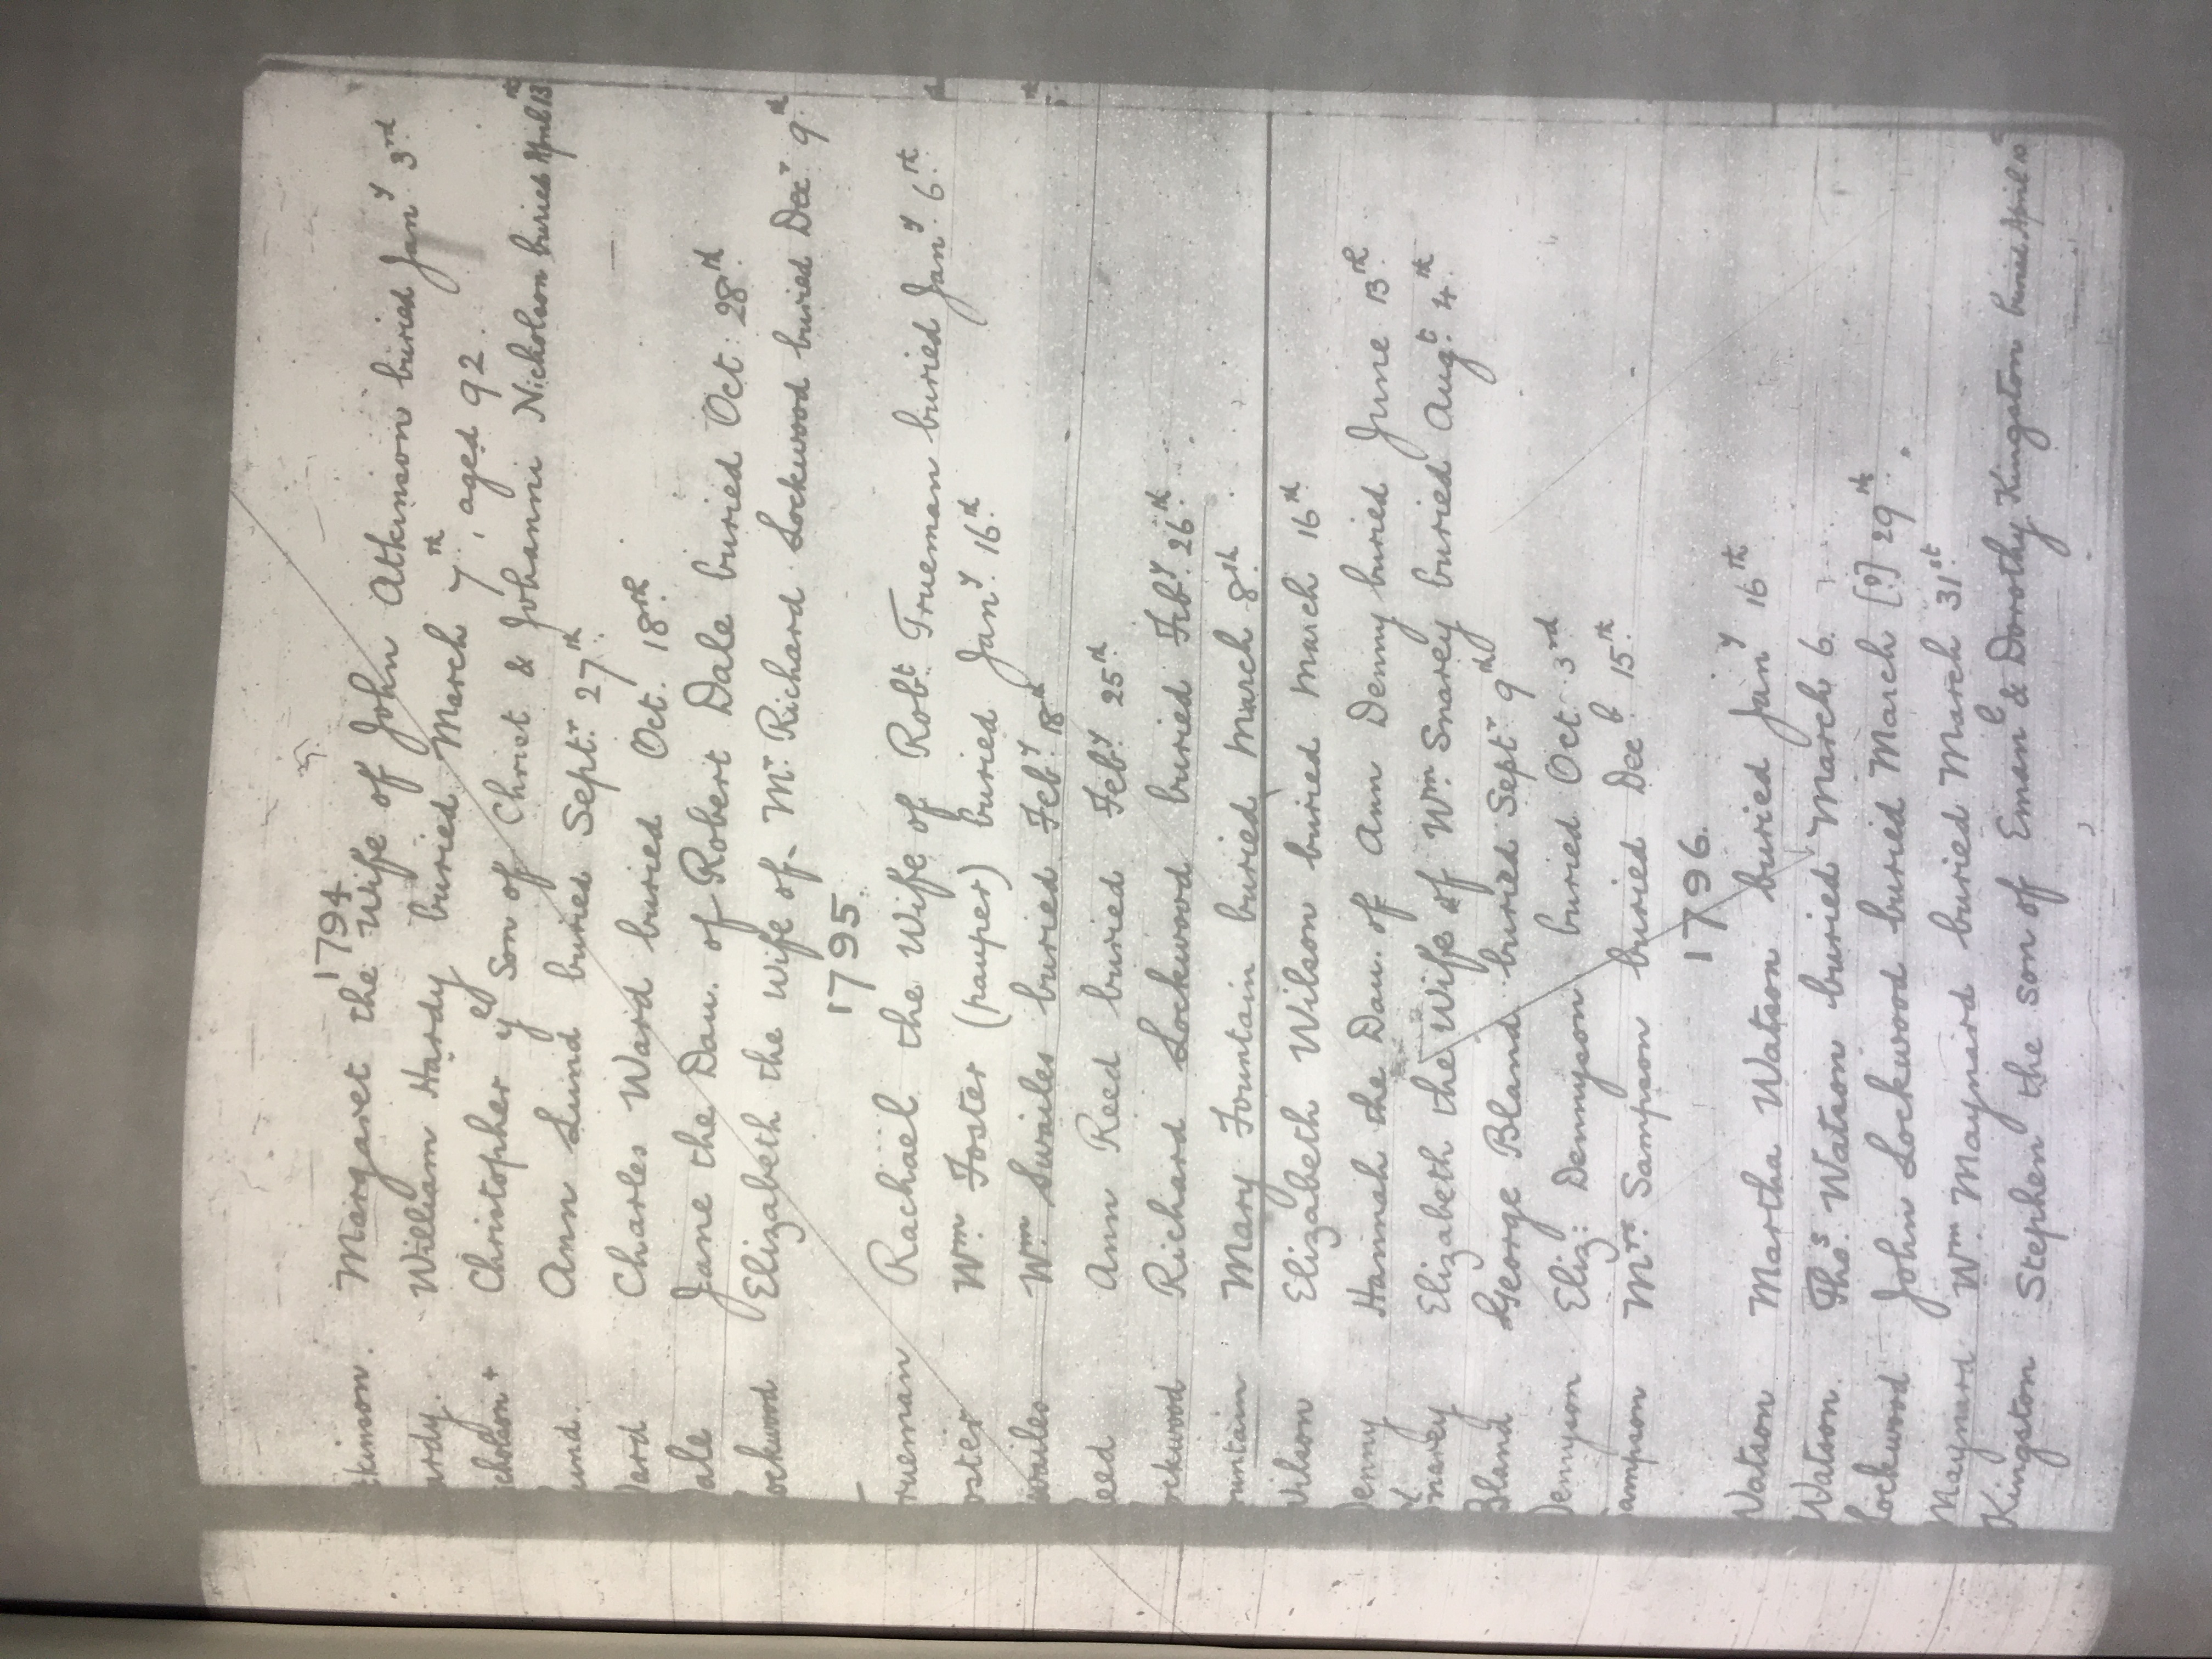 1794
kinson. Margaret the Wife of John Atkinson buried Jany 3rd
ardy. William Hardy buried March 7th, aged 92
icholson + Christopher ye Son of Christ & Johanni Nicholson buried April 13th
und. Ann Lund buried Septr 27th
ard Charles Ward buried Oct. 18th
ale Jane the Dau. of Robert Dale buried Oct: 28th
ockwood Elizabeth the Wife of Mr. Richard Lockwood buried Decr 9th
1795.
rueman Rachael the Wife of Robt. Trueman buried Jany 6th
oster Wm Foster (pauper) buried Jany 16th
wailes Wm Swailes buried Feby 18th
eed Ann Reed buried Feby 25th
ockwood Richard Lockwood buried Feby 26th
ountain Mary Fountain buried March 8th
Wilson Elizabeth Wilson buried March 16th
Denny Hannah the Dau. of Ann Denny buried June 13th
Snarey Elizabeth the Wife of Wm Snarey buried Augt 4th
Bland George Bland buried Septr 9th
Dennyson Eliz: Dennyson buried Oct 3rd
ampson Mrs. Sampson buried Decb 15th
1796.
Watson Martha Watson buried Jany 16th
Watson. Thos. Watson buried March 6.
Lockwood John Lockwood buried March [?] 29th
Maynard Wm Maynard buried March 31st
Kingston Stephen the son of Emanl & Dorothy Kingston buried April 10th